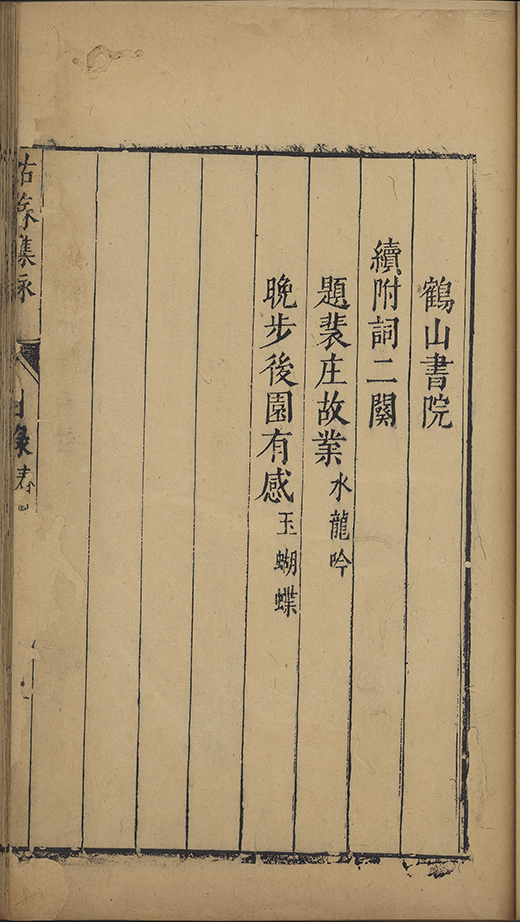 鶴山書院
續附詞二闋
題裴庄故業 水龍吟
晚步後園有感 玉蝴蝶
集詠